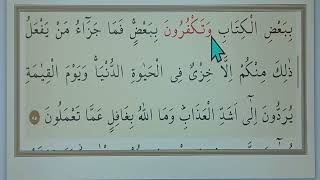 بِبَعْضِ الْكِتَابِ وَتَكْفُرُونَ بِبَعْضٍ فَمَا جَزَٓاءُ مَنْ يَفْعَلُ
ذٰلِكَ مِنْكُمْ اِلَّا خِزْىٌ فِى الْحَيٰوةِ الدُّنْيَا وَيَوْمَ الْقِيٰمَةِ
يُرَدُّونَ اِلٰٓى اَشَدِّ الْعَذَابِ وَمَا اللّٰهُ بِغَافِلٍ عَمَّا تَعْمَلُونَ ٨٥